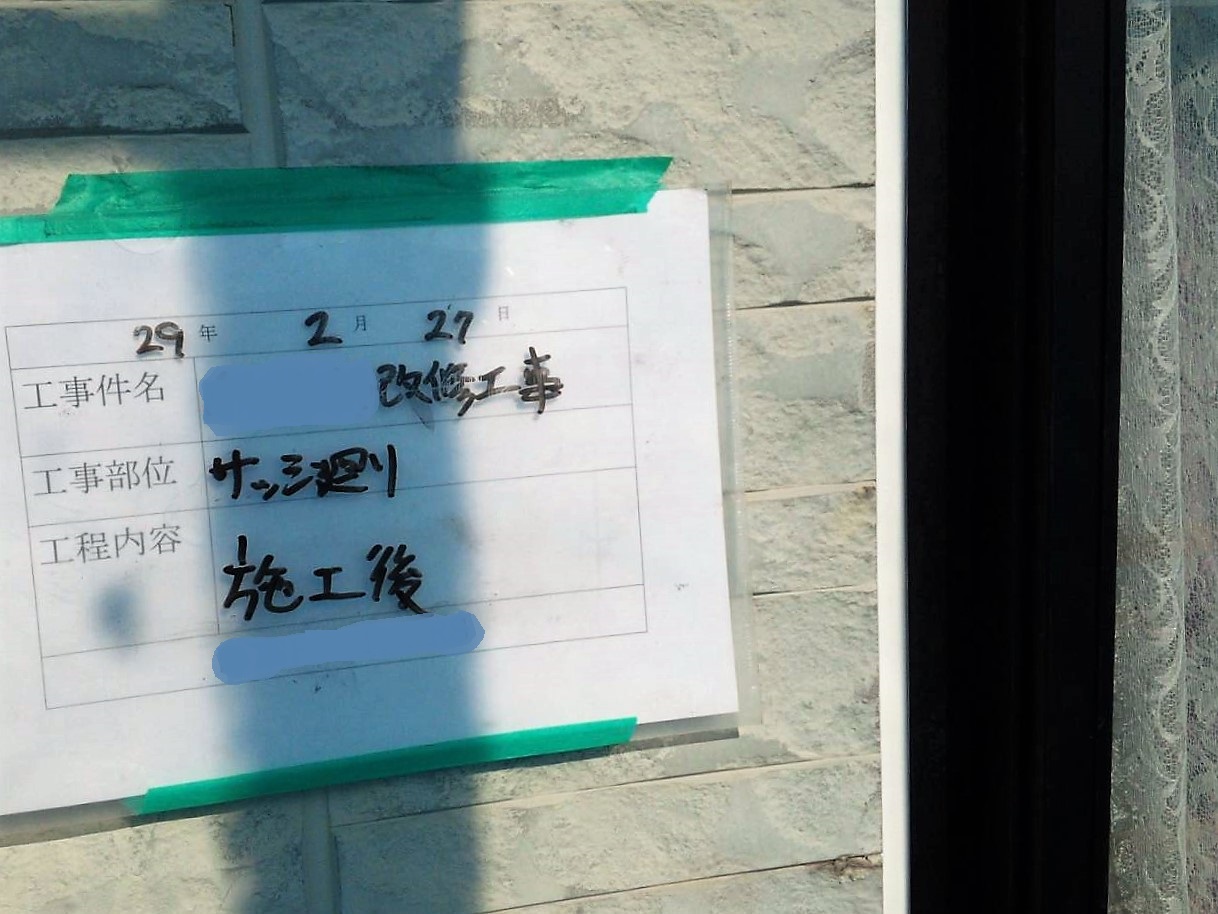 29年 2月 27日
工事件名 改修工事
工事部位 サッシ廻り
工程内容 施工後